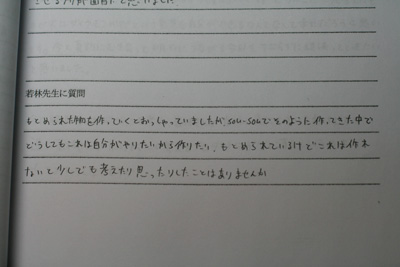 こせる う 所 面白いと思いました
若林先生に質問
もとめられた物を作っていくとおっしゃっていましたが、SOU・SOUでそのように作ってきた中で
どうしてもこれは自分がやりたいから作りたい、もとめられているけどこれは作れ
ないと少しでも考えたり思ったりしたことはありませんか